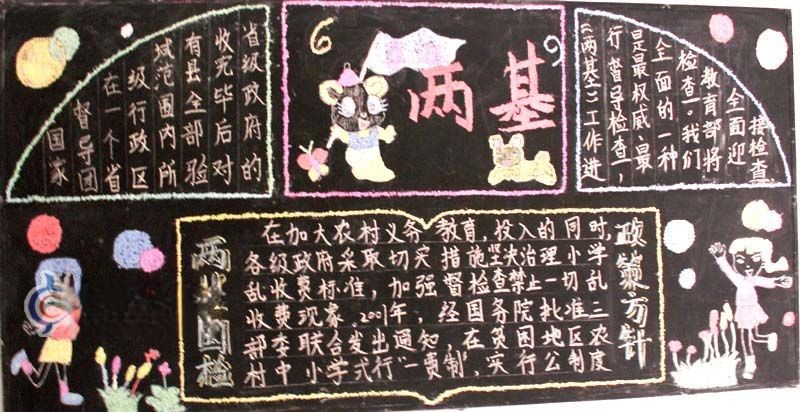 国家
督导团
在一个省
级行政区
域范围内所
有县全部验
收完毕后对
省级政府的
两基
《两基》工作进
行督导检查一,
是最权威、最
全面的一种
检查一。我们
教育部将
全面迎
接检查
两基国检
在加大农村义务教育,投入的同时,
各级政府采取切实措施坚决治理小学
乱收费标准,加强督检查禁止一切乱
收费现象、2001年、经国务院批准三
部委联合发出通知,在贫困地区农
村中小学式行“一责制”,实行公制度
政策方针